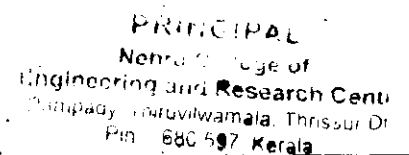 PRINCIPAL
Nehru College of
Engineering and Research Centr
Pampady Thiruvilwamala. Thrissur Dt
Pin 680 597 Kerala